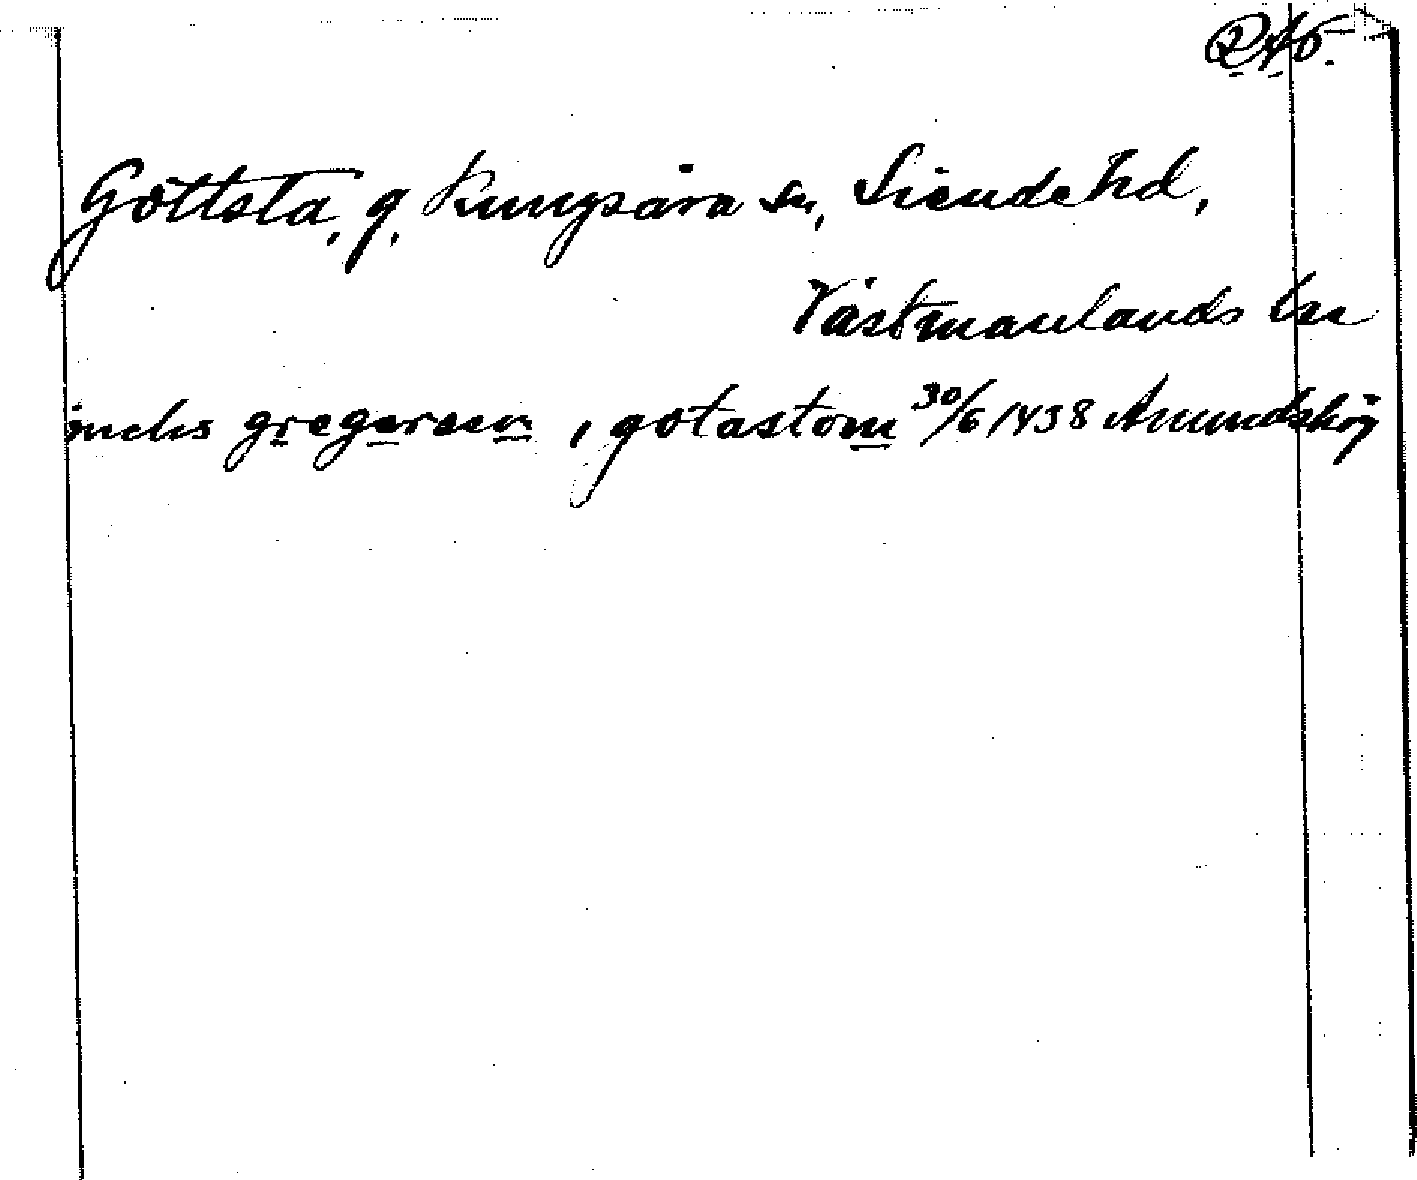 RAp.
Göttsta, g, Kungsåra sn, Siende hd,
Västmanlands län
inchis gregersson, i götastom 30/6 1438 Anundshög